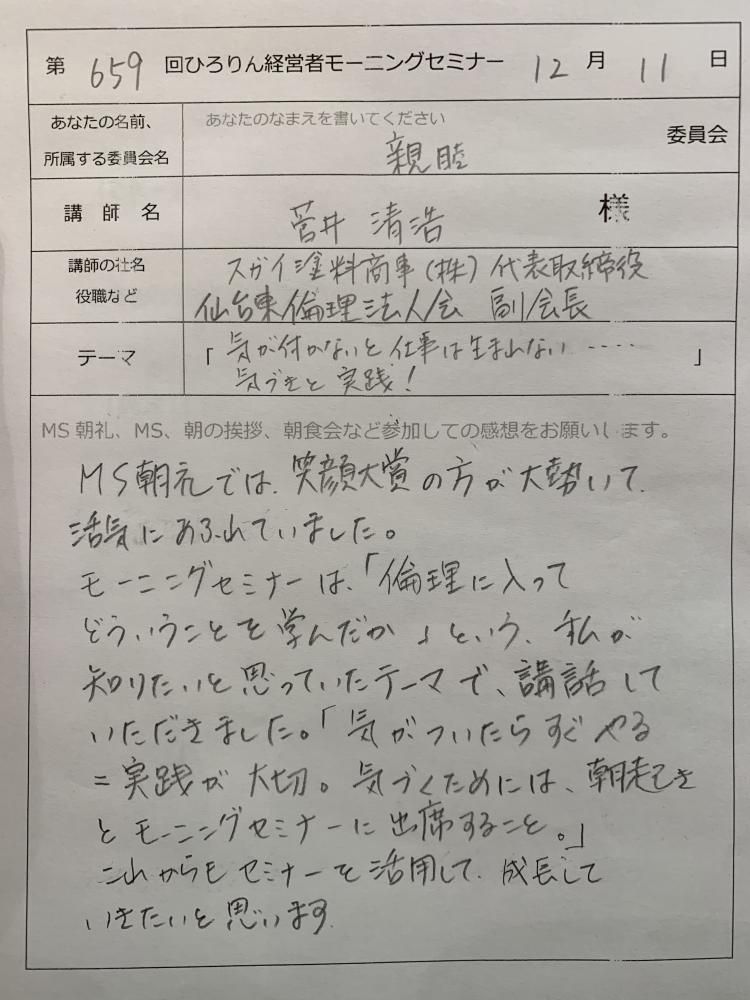 第 659 回ひろりん経営者モーニングセミナー 12 月 11 日
あなたの名前、
所属する委員会名
あなたのなまえを書いてください
親睦
委員会
講 師 名
菅井 清浩
様
講師の社名
役職など
スガイ塗料商事(株) 代表取締役
仙台東倫理法人会 副会長
テーマ
「気が付かないと仕事は生まれない ‥‥‥
気づきと実践! 」
MS朝礼、MS、朝の挨拶、朝食会など参加しての感想をお願いします。
MS朝礼では、笑顔大賞の方が大勢いて、
活気にあふれていました。
モーニングセミナーは、「倫理に入って
どういうことを学んだか」という、私が
知りたいと思っていたテーマで、講話して
いただきました。「気がついたらすぐやる
=実践が大切。気づくためには、朝起き
とモーニングセミナーに出席すること。」
これからもセミナーを活用して、成長して
いきたいと思います